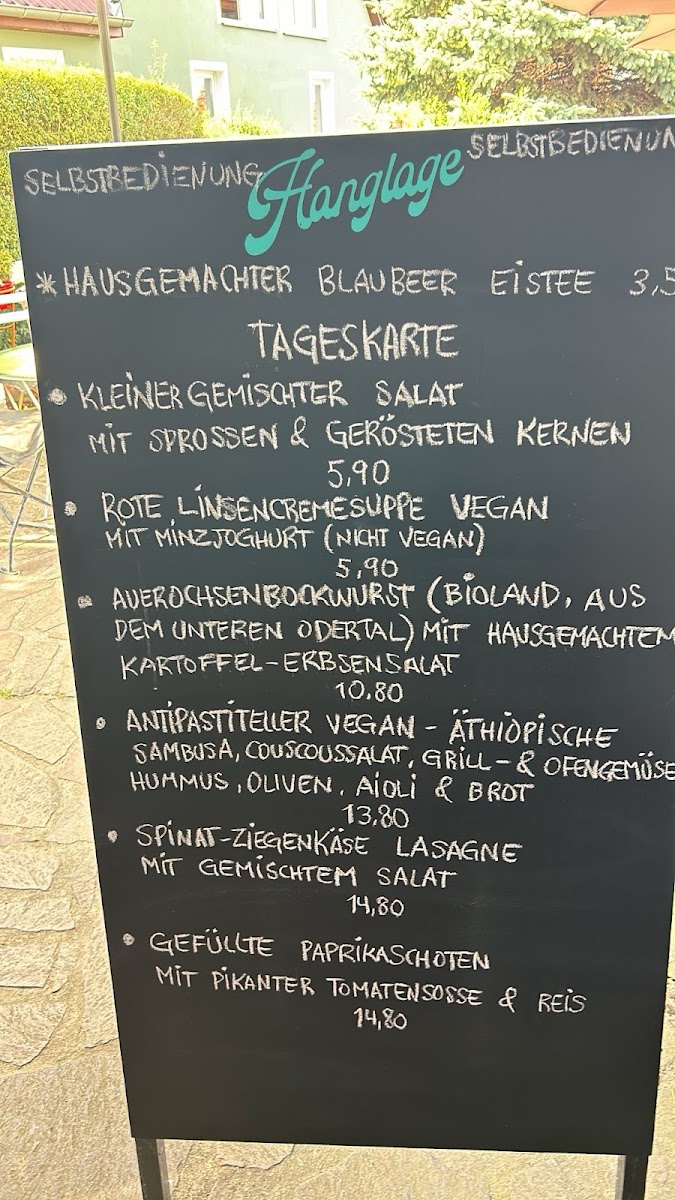 SELBSTBEDIENUNG Hanglage SELBSTBEDIENUN
*HAUSGEMACHTER BLAUBEER EISTEE 3,5
TAGESKARTE
• KLEINER GEMISCHTER SALAT
MIT SPROSSEN & GERÖSTETEN KERNEN
5,90
• ROTE LINSENCREMESUPPE VEGAN
MIT MINZJOGHURT (NICHT VEGAN)
5,90
• AUEROCHSENBOCKWURST (BIOLAND, AUS
DEM UNTEREN ODERTAL) MIT HAUSGEMACHTEM
KARTOFFEL-ERBSENSALAT
10,80
• ANTIPASTITELLER VEGAN - ÄTHIOPISCHE
SAMBUSA, COUSCOUSSALAT, GRILL- & OFENGEMÜSE
HUMMUS, OLIVEN, AIOLI & BROT
13,80
• SPINAT-ZIEGENKÄSE LASAGNE
MIT GEMISCHTEM SALAT
14,80
• GEFÜLLTE PAPRIKASCHOTEN
MIT PIKANTER TOMATENSOSSE & REIS
14,80